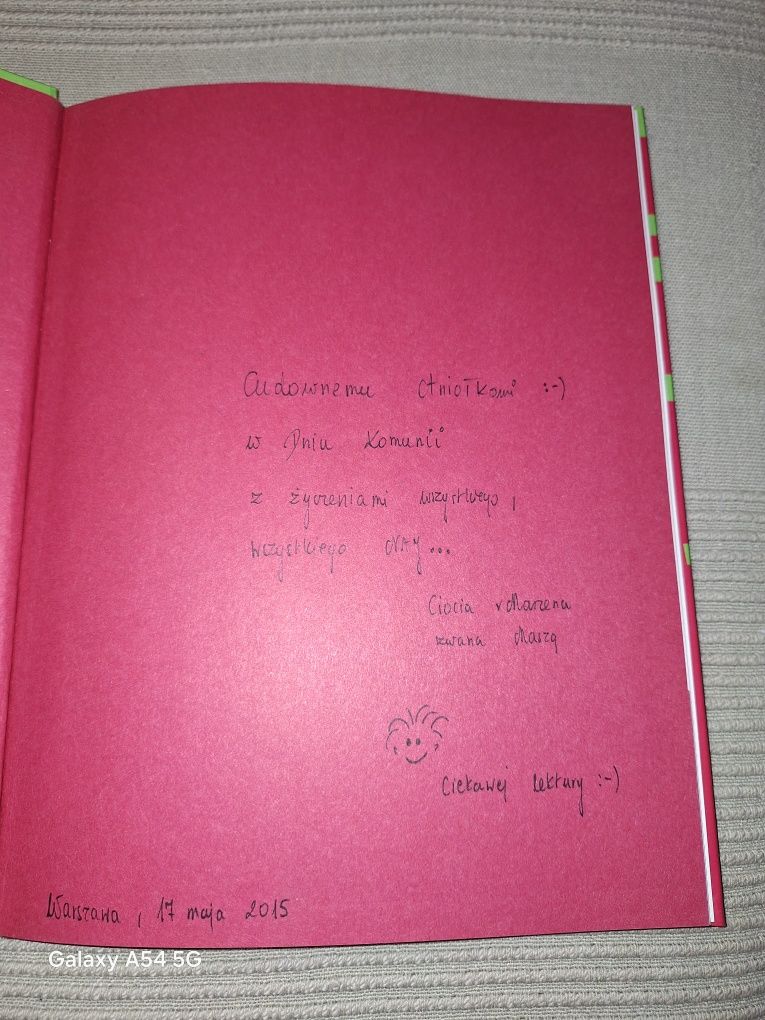 Cudownemu Aniołkowi :-)
w Dniu Komunii
z życzeniami wszystkiego,
wszystkiego NAJ...
Ciocia Marzena
zwana Maszą
Ciekawej lektury :-)
Warszawa, 17 maja 2015
Galaxy A54 5G